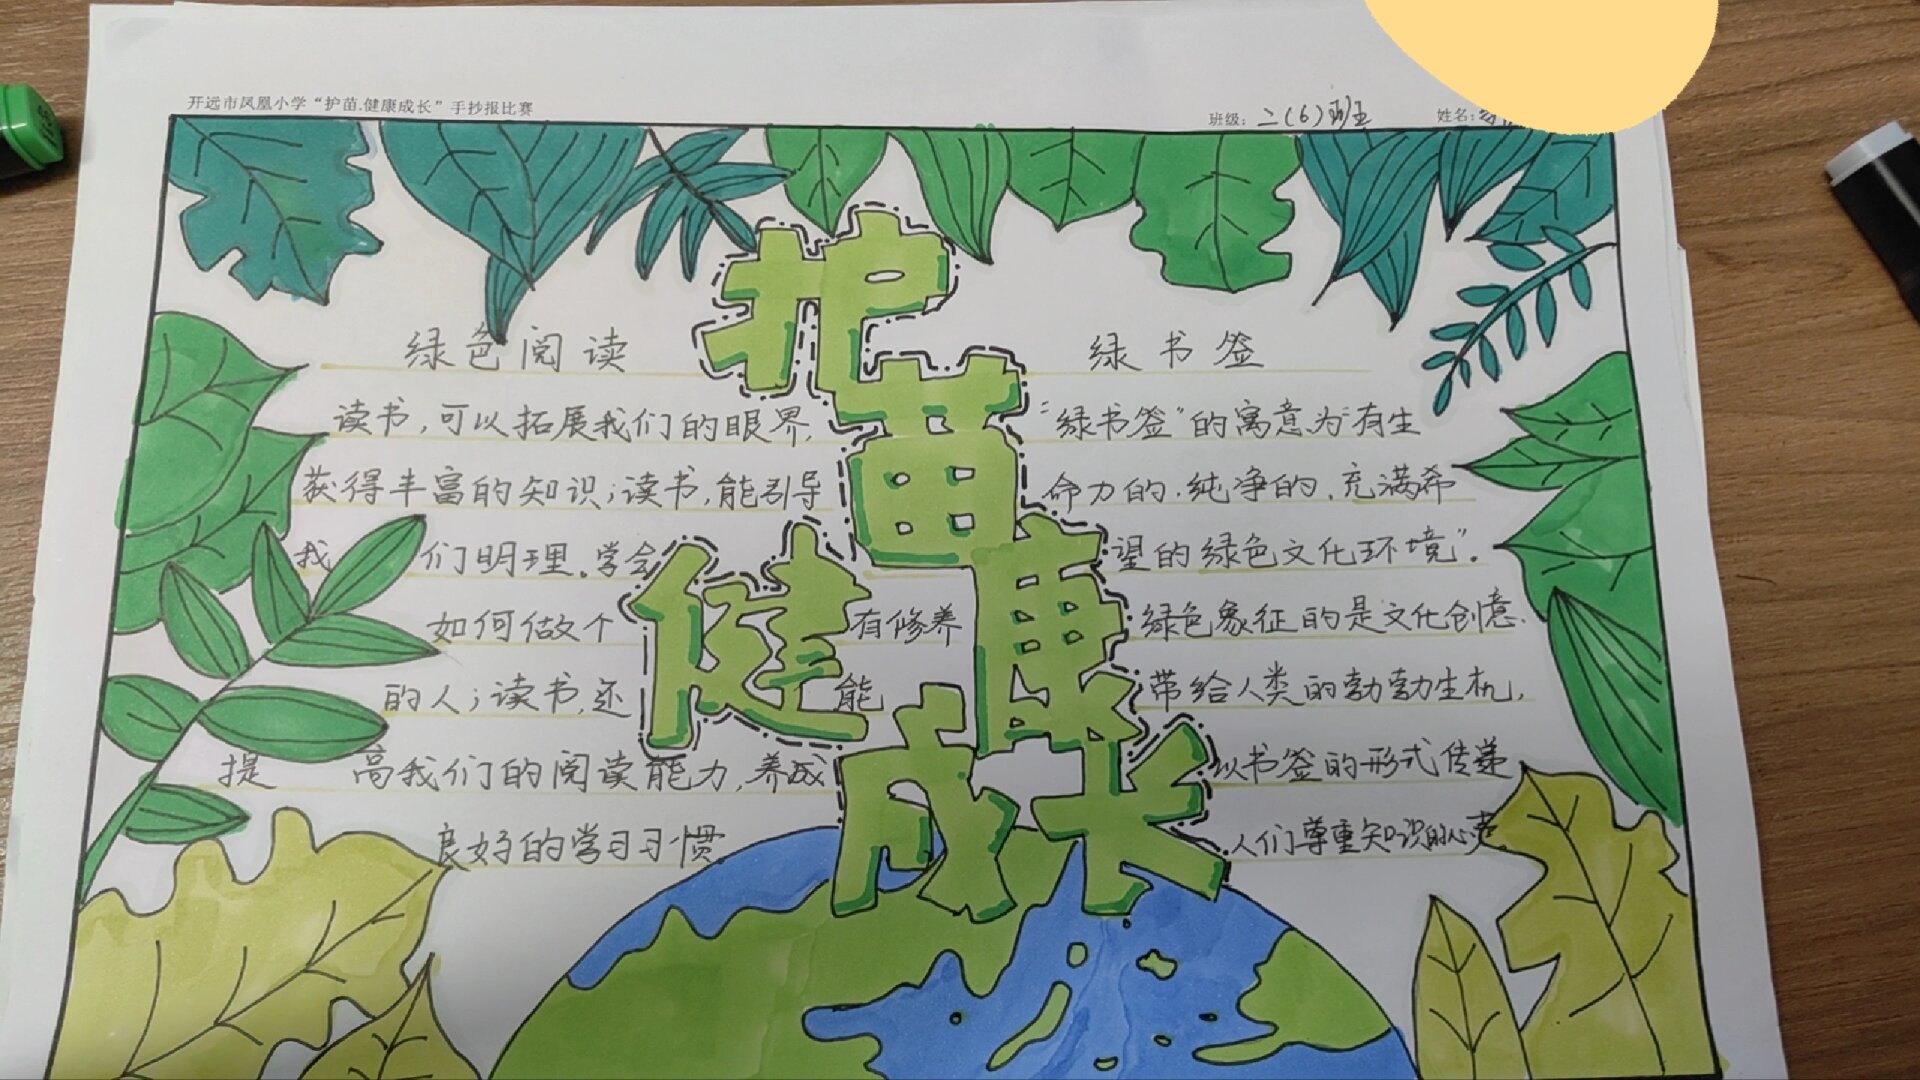 开远市凤凰小学“护苗.健康成长”手抄报比赛
班级：二(6)班
姓名：
护苗
健康
成长
绿色阅读
读书，可以拓展我们的眼界，
获得丰富的知识；读书，能引导
我们明理。学会
如何做个有修养
的人；读书，还能
提高我们的阅读能力，养成
良好的学习习惯。
绿书签
“绿书签”的寓意为“有生
命力的，纯净的，充满希
望的绿色文化环境”。
绿色象征的是文化创意，
带给人类的勃勃生机，
以书签的形式传递
人们尊重知识的心